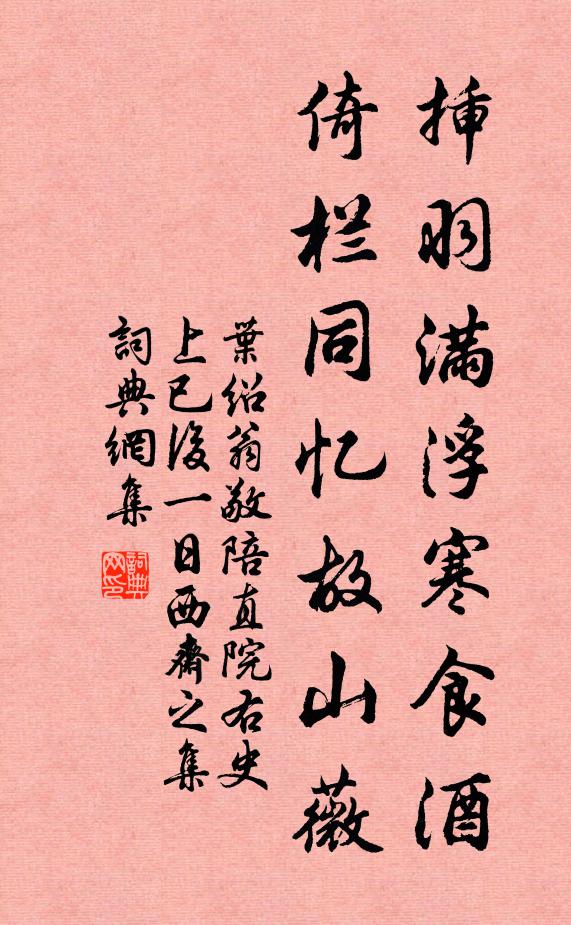 揷羽满浮寒食酒
倚栏同忆故山薇
葉绍翁敬陪直院右史
上巳後一日西齋之集
詞典網集
詞典网印